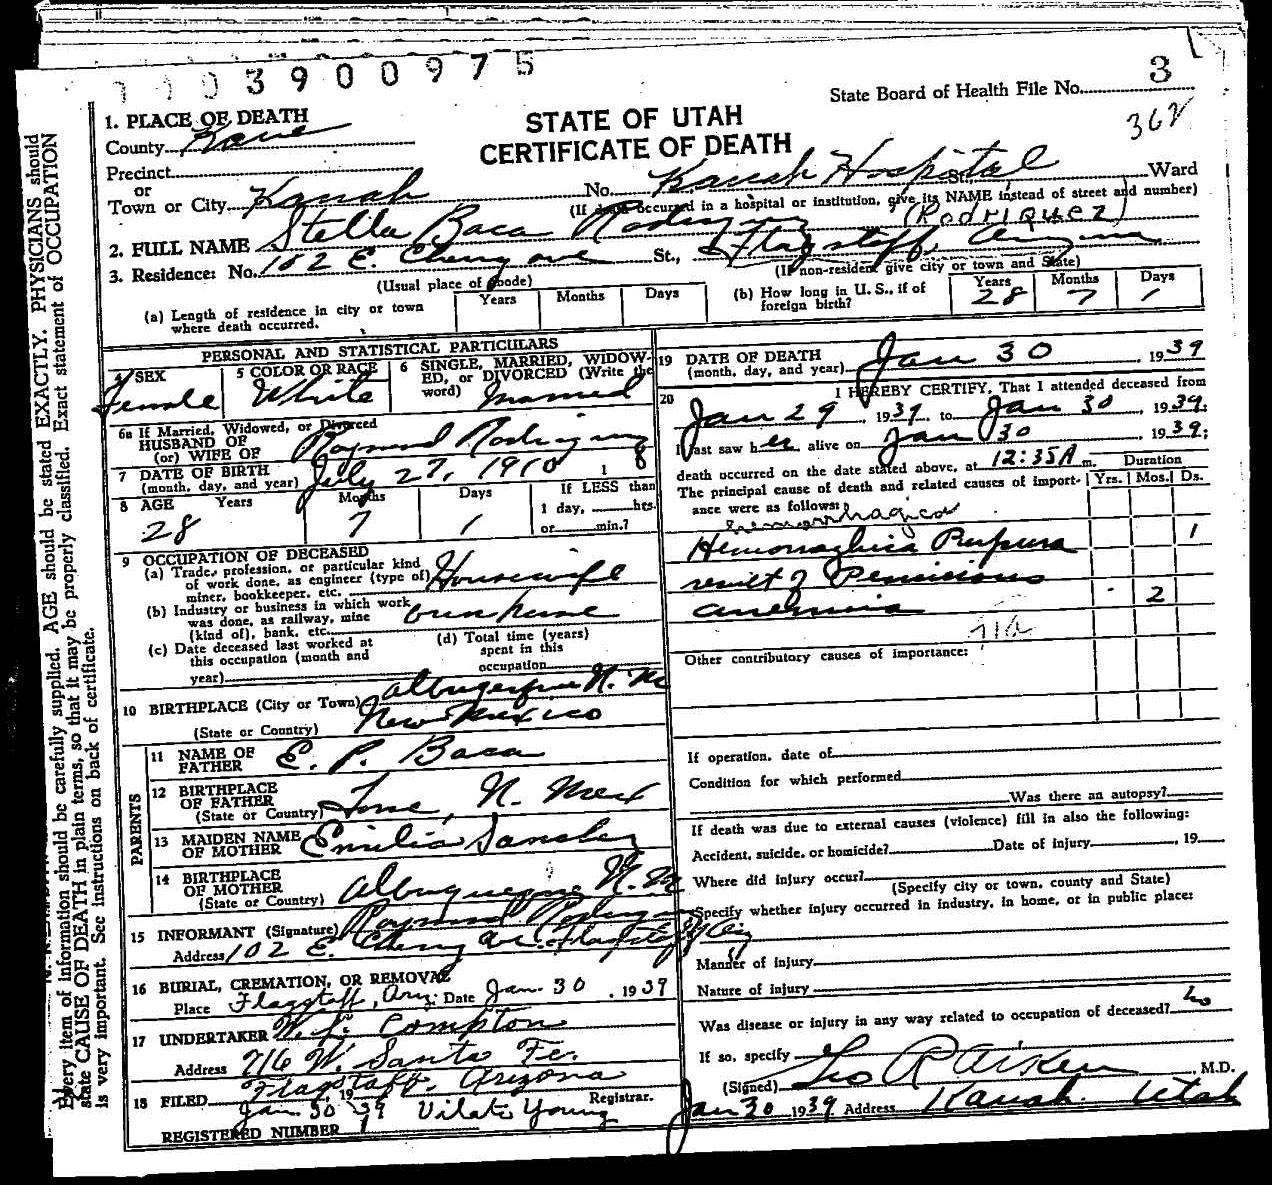 3900975
State Board of Health File No. 3
362
STATE OF UTAH
CERTIFICATE OF DEATH
1. PLACE OF DEATH
County Kane
Precinct
or
Town or City Kanab No. Kanab Hospital St., Ward
(If death occurred in a hospital or institution, give its NAME instead of street and number)
2. FULL NAME Stella Baca Rodriguez (RODRIQUEZ)
3. Residence: No. 102 E. Cherry ave St., Flagstaff, Arizona
(Usual place of abode) (If non-resident give city or town and State)
(a) Length of residence in city or town where death occurred. Years Months Days
(b) How long in U. S., if of foreign birth? Years 28 Months 7 Days 1
PERSONAL AND STATISTICAL PARTICULARS
4 SEX Female
5 COLOR OR RACE White
6 SINGLE, MARRIED, WIDOWED, or DIVORCED (Write the word) Married
6a If Married, Widowed, or Divorced
HUSBAND OF
(or) WIFE OF Raymond Rodriguez
7 DATE OF BIRTH
(month, day, and year) July 27, 1910 1 8
8 AGE Years 28 Months 7 Days 1 If LESS than 1 day, hrs. or min.?
9 OCCUPATION OF DECEASED
(a) Trade, profession, or particular kind of work done, as engineer (type of) miner, bookkeeper, etc. Housewife
(b) Industry or business in which work was done, as railway, mine (kind of), bank, etc. own home
(c) Date deceased last worked at this occupation (month and year)
(d) Total time (years) spent in this occupation
10 BIRTHPLACE (City or Town) Albuquerque N. M
(State or Country) New Mexico
PARENTS
11 NAME OF FATHER E. P. Baca
12 BIRTHPLACE OF FATHER
(State or Country) Tome, N. Mex
13 MAIDEN NAME OF MOTHER Emilia Sanchez
14 BIRTHPLACE OF MOTHER
(State or Country) Albuquerque N. M
15 INFORMANT (Signature) Raymond Rodriguez
Address 102 E. Cherry Ave. Flagstaff Ariz
16 BURIAL, CREMATION, OR REMOVAL
Place Flagstaff, Ariz. Date Jan. 30, 1939
17 UNDERTAKER W. L. Compton
Address 716 W. Santa Fe.
Flagstaff, Arizona
18 FILED Jan 30 1939 Vilate Young Registrar.
REGISTERED NUMBER 1
19 DATE OF DEATH
(month, day, and year) Jan 30, 1939
20 I HEREBY CERTIFY, That I attended deceased from
Jan 29, 1939, to Jan 30, 1939;
I last saw her alive on Jan 30, 1939;
death occurred on the date stated above, at 12:35A m.
Duration
The principal cause of death and related causes of importance were as follows: Yrs. Mos. Ds.
hemorrhagica
Hemorraghica Purpura 1
result of Pernicious
anemia 2
71a
Other contributory causes of importance:
If operation, date of
Condition for which performed
Was there an autopsy?
If death was due to external causes (violence) fill in also the following:
Accident, suicide, or homicide? Date of injury , 19
Where did injury occur?
(Specify city or town, county and State)
Specify whether injury occurred in industry, in home, or in public place:
Manner of injury
Nature of injury
Was disease or injury in any way related to occupation of deceased? No
If so, specify
(Signed) Geo R Aiken, M.D.
Jan 30 1939 Address Kanab Utah
Every item of information should be carefully supplied. AGE should be stated EXACTLY. PHYSICIANS should
state CAUSE OF DEATH in plain terms, so that it may be properly classified. Exact statement of OCCUPATION
is very important. See instructions on back of certificate.